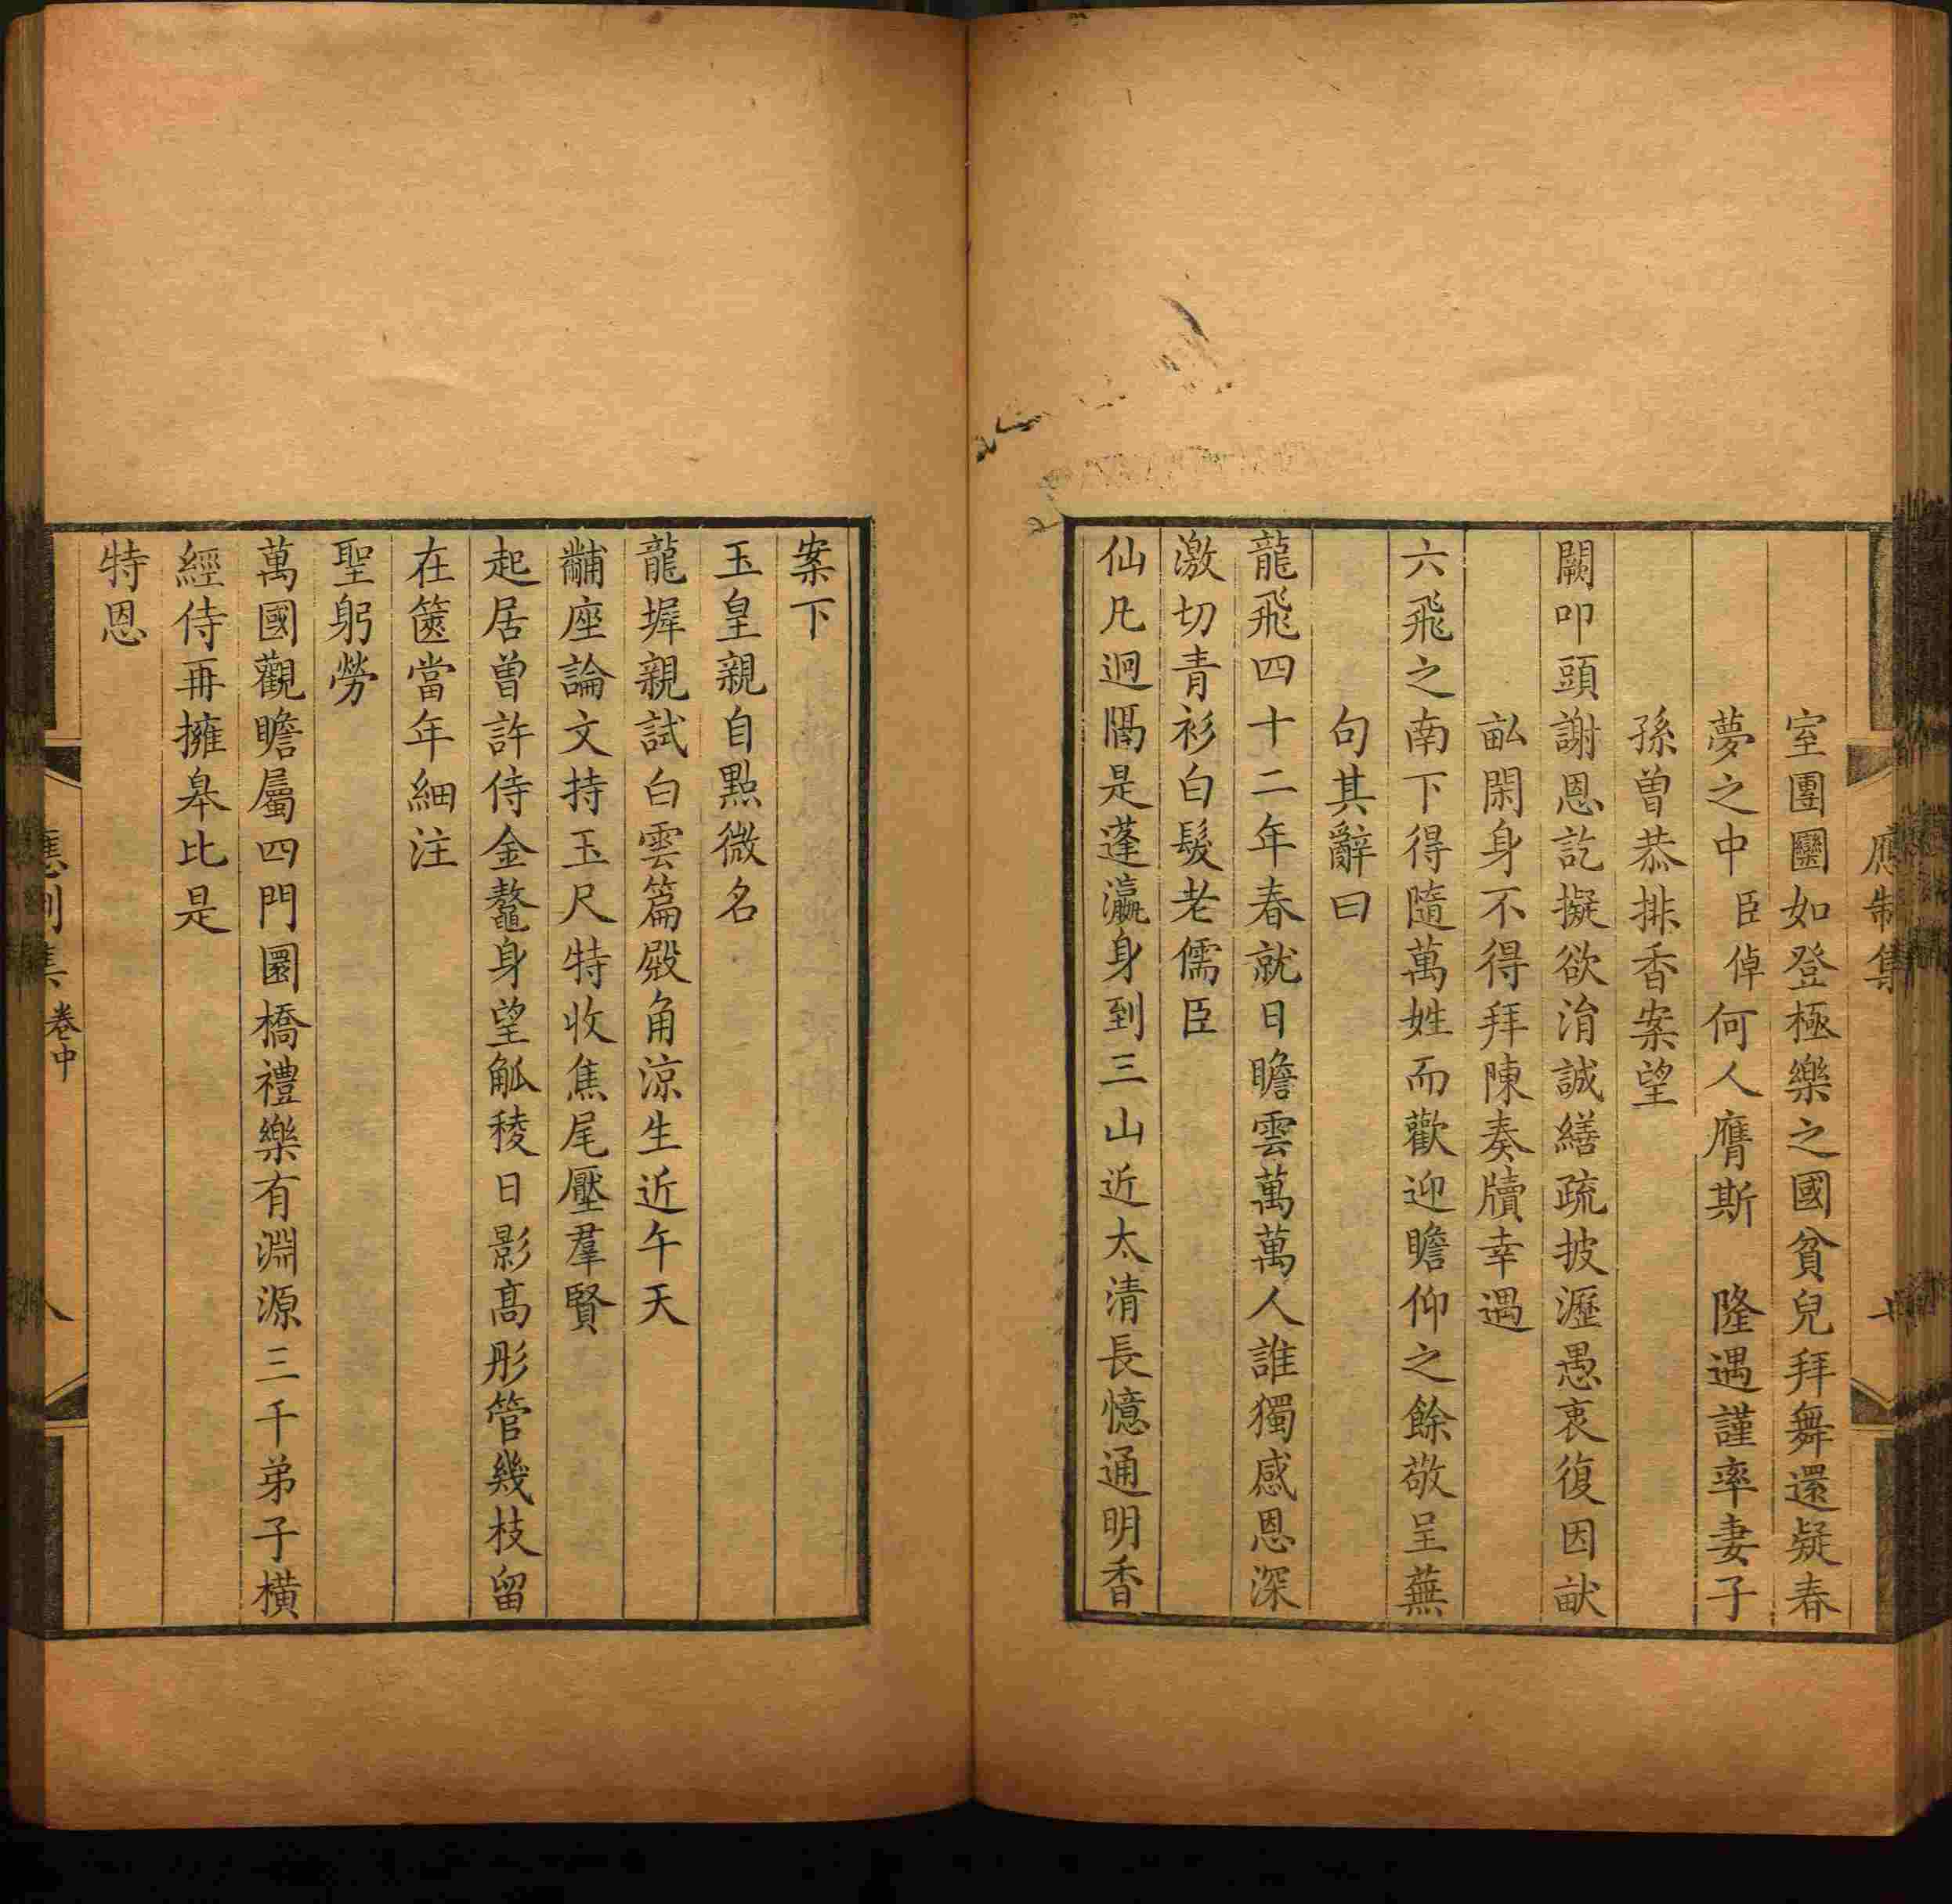 應制集
室團圞如登極樂之國貧兒拜舞還疑春
夢之中臣倬何人膺斯 隆遇謹率妻子
孫曾恭排香案望
闕叩頭謝恩訖擬欲涓誠繕疏披瀝愚衷復因畎
畝閑身不得拜陳奏牘幸遇
六飛之南下得隨萬姓而歡迎瞻仰之餘敬呈蕪
句其辭曰
龍飛四十二年春就日瞻雲萬萬人誰獨感恩深
激切青衫白髮老儒臣
仙凡迥隔是蓬瀛身到三山近太清長憶通明香
案下
玉皇親自點微名
龍墀親試白雲篇殿角涼生近午天
黼座論文持玉尺特收焦尾壓羣賢
起居曾許侍金鼇身望觚稜日影高彤管幾枝留
在篋當年細注
聖躬勞
萬國觀瞻屬四門圜橋禮樂有淵源三千弟子橫
經侍再擁皋比是
特恩
應制集 卷中 八